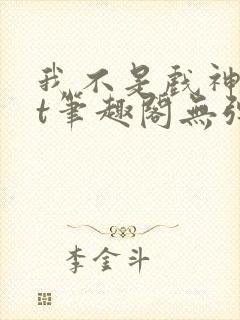 我不是戲神
t筆趣閣無弹
李金斗